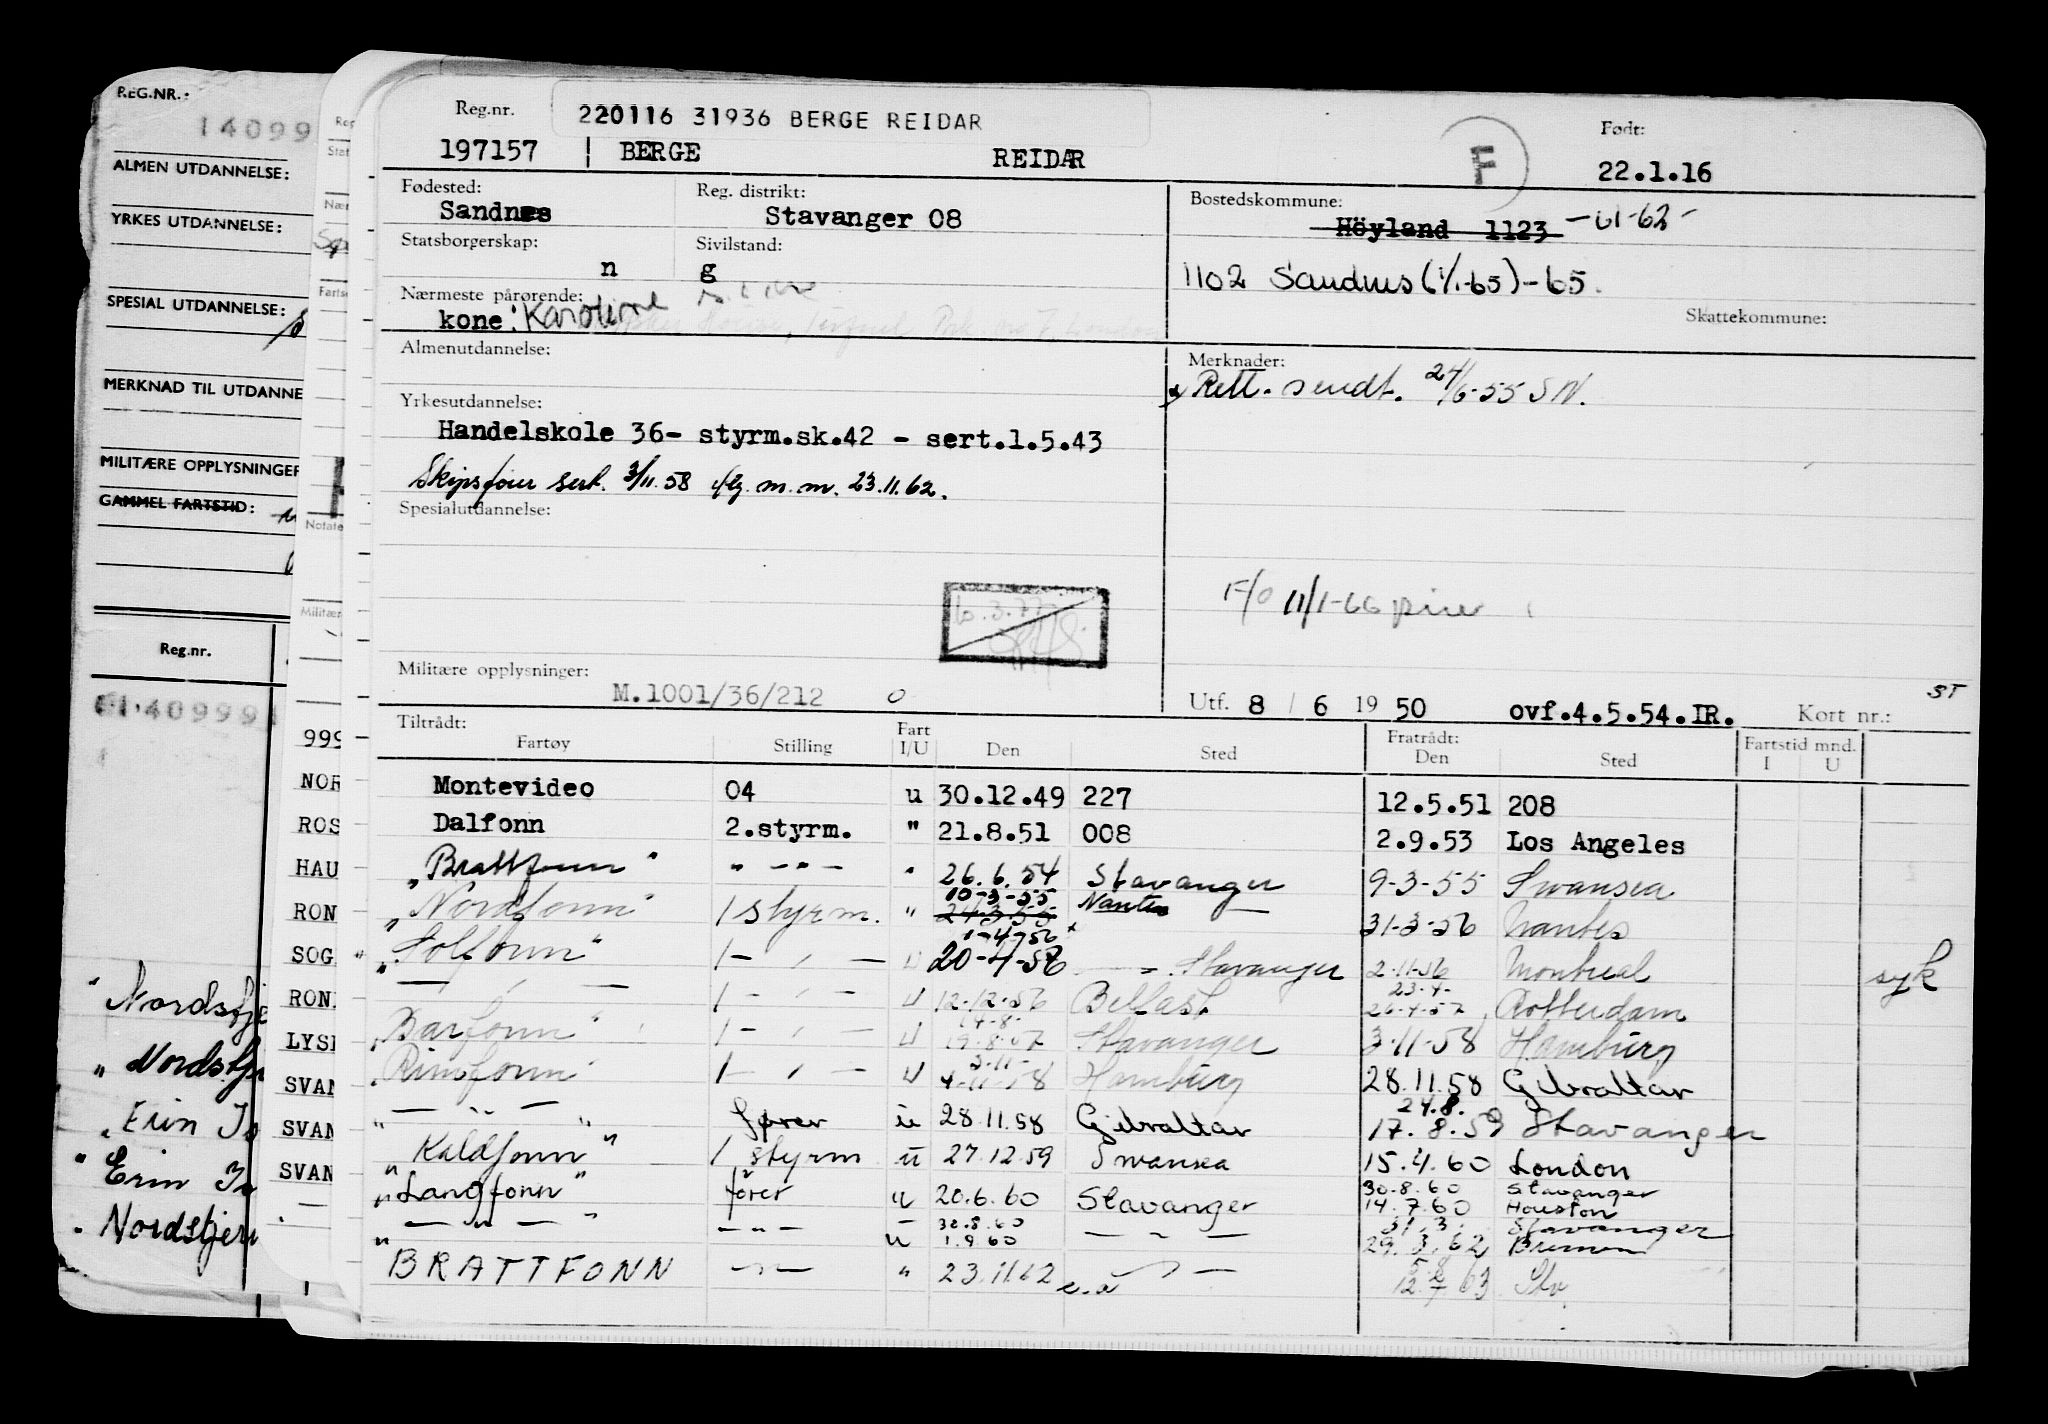 REG.NR.:
14099
ALMEN UTDANNELSE:
YRKES UTDANNELSE:
SPESIAL UTDANNELSE:
MERKNAD TIL UTDANNE
MILITÆRE OPPLYSNINGER
GAMMEL FARTSTID:
Reg.nr.
1409991
"Nordstje
"Nordstje
"Erin
"Erin
"Nordstjern
Reg
Stat
Nær
Fartsc
Notate
Militær
999
NOR
ROS
HAU
RON
SOG
RON
LYSE
SVAN
SVAN
SVAN
Reg.nr. 220116 31936 BERGE REIDAR Født:
197157 BERGE REIDAR F 22.1.16
Fødested: Reg. distrikt: Bostedskommune:
Sandnes Stavanger 08 Höyland 1123 -61-62-
Statsborgerskap: Sivilstand:
n g 1102 Sandnes (1/1-65)-65.
Nærmeste pårørende: Skattekommune:
kone: Karoline
Almenutdannelse: Merknader:
x Rett. sendt. 24/6-55 SN.
Yrkesutdannelse:
Handelskole 36- styrm.sk.42 - sert.1.5.43
Skipsfører sert. 3/11.58 m.m. 23.11.62.
Spesialutdannelse:
F/O 11/1-66
6.3.77
Militære opplysninger: ST
M.1001/36/212 0 Utf. 8 / 6 19 50 ovf.4.5.54.IR. Kort nr.:
Tiltrådt: Fart Fratrådt: Fartstid mnd.
Fartøy Stilling I/U Den Sted Den Sted I U
Montevideo 04 u 30.12.49 227 12.5.51 208
Dalfonn 2.styrm. " 21.8.51 008 2.9.53 Los Angeles
"Brattfonn" " - " - " 26.6.54 Stavanger 9-3-55 Swansea
10-3-55 Nantes
"Nordfonn" 1 styrm. " 24-3-55 — 31-3-56 Nantes
1-4-56 x
"Solfonn" 1 - , - u 20-4-56 — " Stavanger 2-11-56 Montreal syk
23-4-
— , — 1 - , - u 12-12-56 Belfast 26-4-57 Rotterdam
14-8-
"Barfonn" 1 - , - u 19-8-57 Stavanger 3-11-58 Hamburg
3-11-
"Rimfonn" 1 - , - u 4-11-58 Hamburg 28.11.58 Gibraltar
24.8.
" — " — " fører u 28.11.58 Gibraltar 17.8.59 Stavanger
"Kaldfonn" 1 styrm u 27.12.59 Swansea 15.4.60 London
30.8.60 Stavanger
"Langfonn" fører u 20.6.60 Stavanger 14.7.60 Houston
30.8.60 31.3. Stavanger
" — " — " - " - u 1.9.60 — " — 29.3.62 Bremen
5.8
BRATTFONN - " - " 23.11.62 — " — 12.7 63 Stv